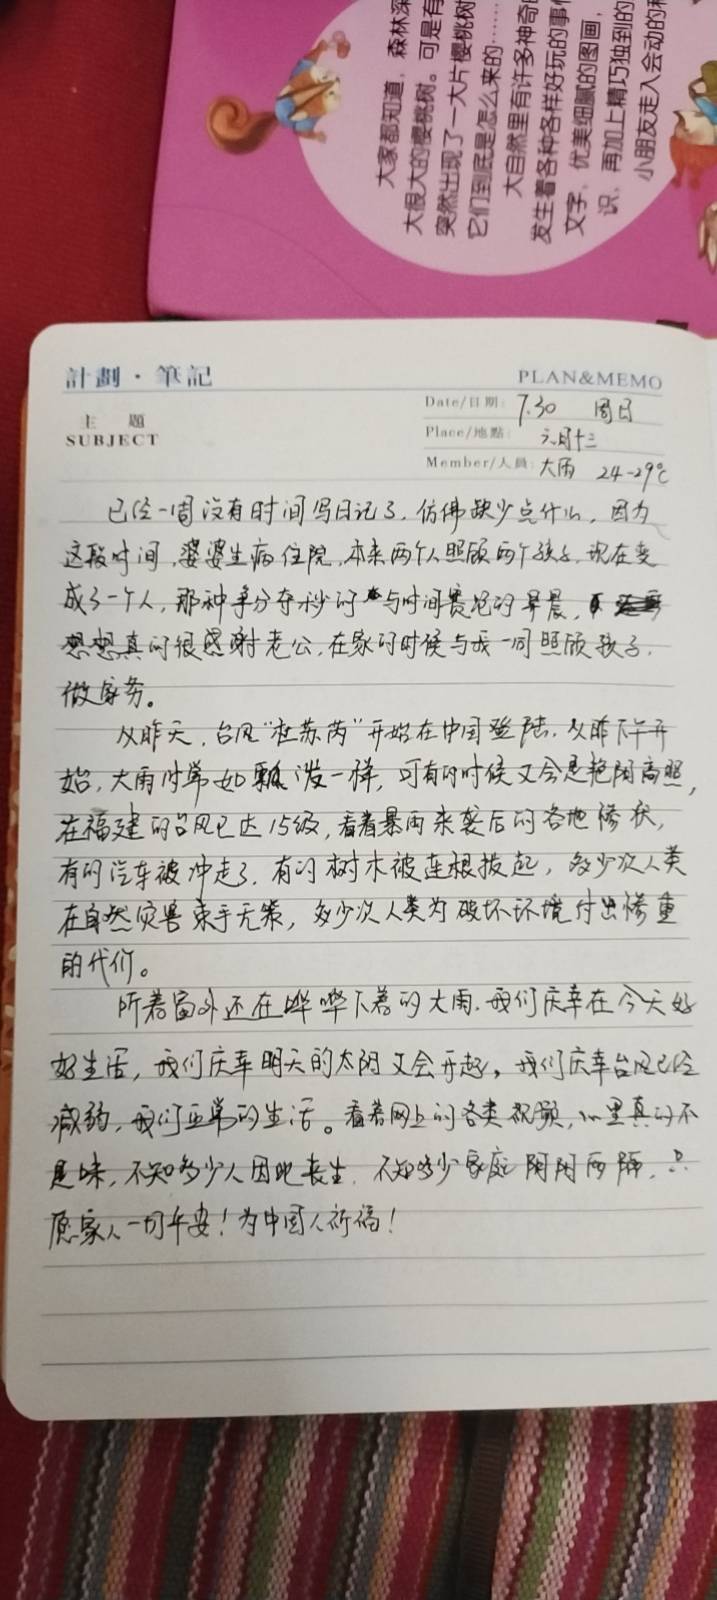 大家都知道，森林深
大很大的樱桃树。可是有
突然出现了一大片樱桃树
它们到底是怎么来的……
大自然里有许多神奇的
发生着各种各样好玩的事
文字，优美细腻的图画，
识，再加上精巧独到的
小朋友走入会动的
計劃·筆記
PLAN&MEMO
主 題
SUBJECT
Date/日期: 7.30 周日
Place/地點: 六月十三
Member/人員: 大雨 24-29℃
已经一周没有时间写日记了，仿佛缺少点什么，因为
这段时间，婆婆生病住院，本来两个人照顾两个孩子，现在变
成了一个人，那种争分夺秒的与时间赛跑的早晨，
想想真的很感谢老公，在家的时候与我一同照顾孩子，
做家务。
从昨天，台风“杜苏芮”开始在中国登陆，从昨下午开
始，大雨时常如瓢泼一样，可有的时候又会是艳阳高照，
在福建的台风已达15级，看着暴雨来袭后的各地惨状，
有的汽车被冲走了，有的树木被连根拔起，多少次人类
在自然灾害束手无策，多少次人类为破坏环境付出惨重
的代价。
听着窗外还在哗哗下着的大雨，我们庆幸在今天好
好生活，我们庆幸明天的太阳又会升起，我们庆幸台风已经
减弱，我们正常的生活。看着网上的各类视频，心里真的不
是味，不知多少人因此丧生，不知多少家庭阴阳两隔，只
愿家人一切平安！为中国人祈福！